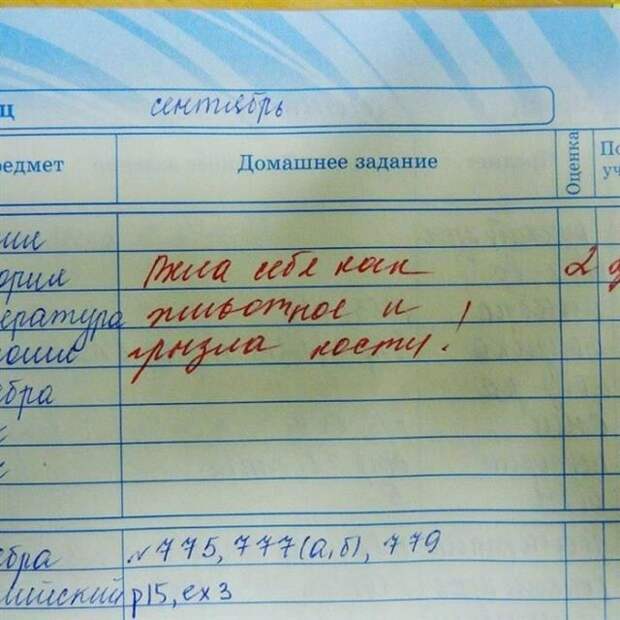 ц сентябрь
редмет Домашнее задание Оценка По уч
ория Вела себя как 2
ература животное и
грызла кости!
ебра
ебра № 775, 777(а,б), 779
лийский р15, ех3